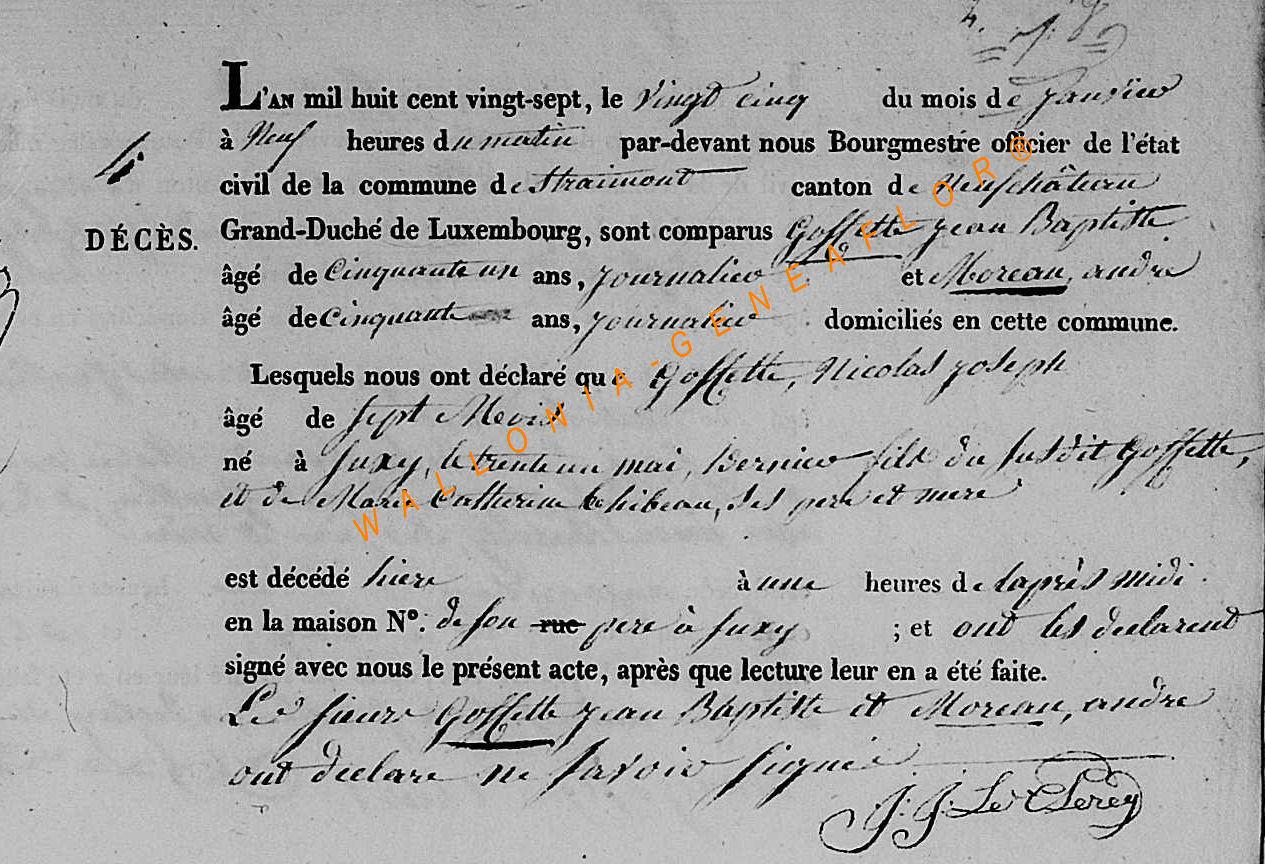 4.
L'AN mil huit cent vingt-sept, le vingt cinq du mois de Janvier
à Neuf heures du matin par-devant nous Bourgmestre officier de l'état
civil de la commune de Straimont canton de Neufchâteau
DÉCÈS.
Grand-Duché de Luxembourg, sont comparus Goffette Jean Baptiste
âgé de Cinquante un ans, journalier et Moreau, andré
âgé de Cinquante ans, journalier domiciliés en cette commune.
Lesquels nous ont déclaré que Goffette, Nicolas Joseph
âgé de sept Mois
né à Suxy, le trente un mai, dernier fils du susdit Goffette,
et de Marie Catherine thibeau, ses pere et mere
est décédé hiere à une heures de laprès midi.
en la maison N°. de son rue pere à Suxy ; et ont les declarent
signé avec nous le présent acte, après que lecture leur en a été faite.
Les sieurs Goffette jean Baptiste et Moreau, andre
ont declare ne savoir signer
J. J. Le Clerey
WALLONIA-GENEAFLOR®